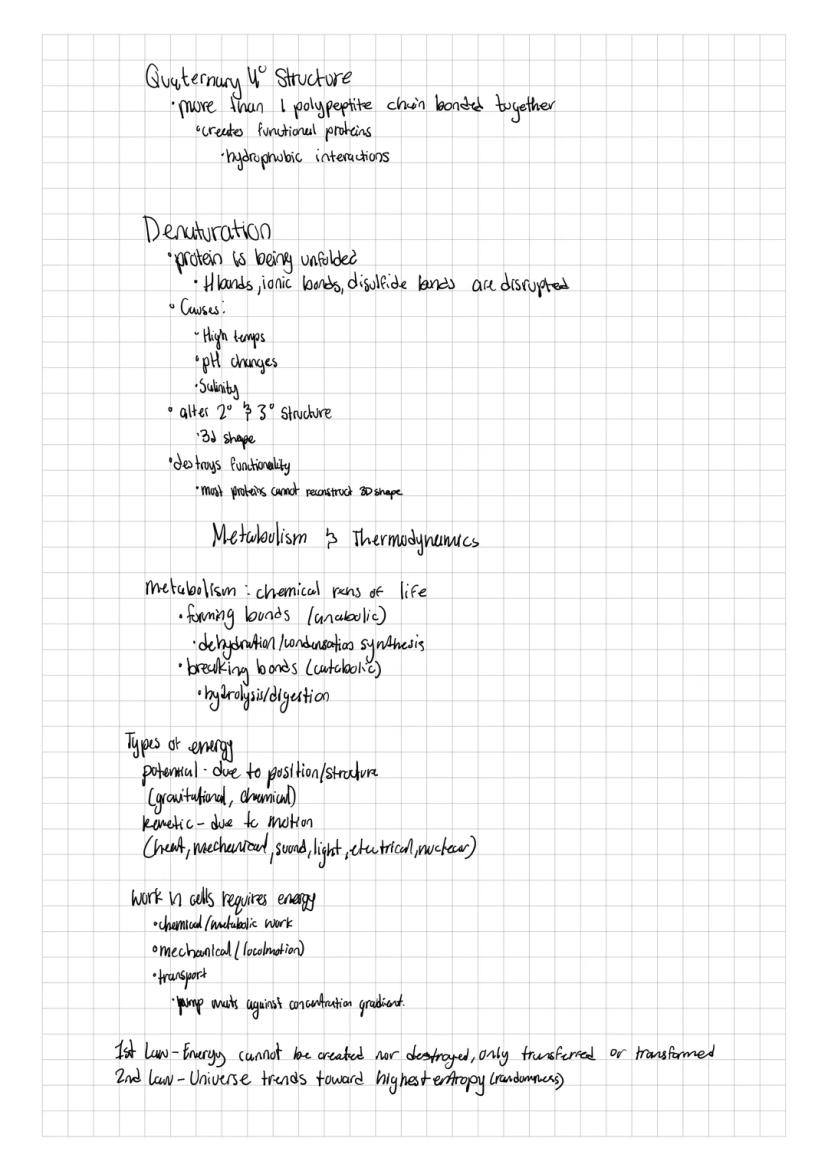 Quaternary 4° Structure
• more than 1 polypeptite chain bonded together
• creates functional proteins
• hydrophobic interactions
Denaturation
• protein is being unfolded
• H bonds, ionic bonds, disulfide bonds are disrupted
• Causes:
• High temps
• pH changes
• Salinity
• alter 2° & 3° structure
• 3d shape
• destroys functionality
• most proteins cannot reconstruct 3D shape
Metabolism & Thermodynamics
metabolism: chemical rxns of life
• forming bonds (anabolic)
• dehydration/condensation synthesis
• breaking bonds (catabolic)
• hydrolysis/digestion
Types of energy
potential - due to position/structure
(gravitational, chemical)
kenetic - due to motion
(heat, mechanical, sound, light, electrical, nuclear)
Work in cells requires energy
• chemical/metabolic work
• mechanical (locolmotion)
• transport
• pump mats against concentration gradient.
1st Law - Energy cannot be created nor destroyed, only transferred or transformed
2nd Law - Universe trends toward highest entropy (randomness)